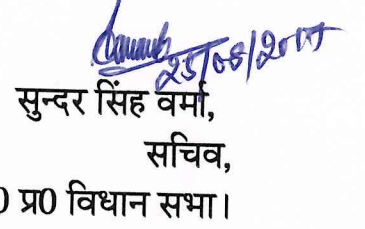 25/08/2017
सुन्दर सिंह वर्मा,
सचिव,
0 प्र0 विधान सभा।